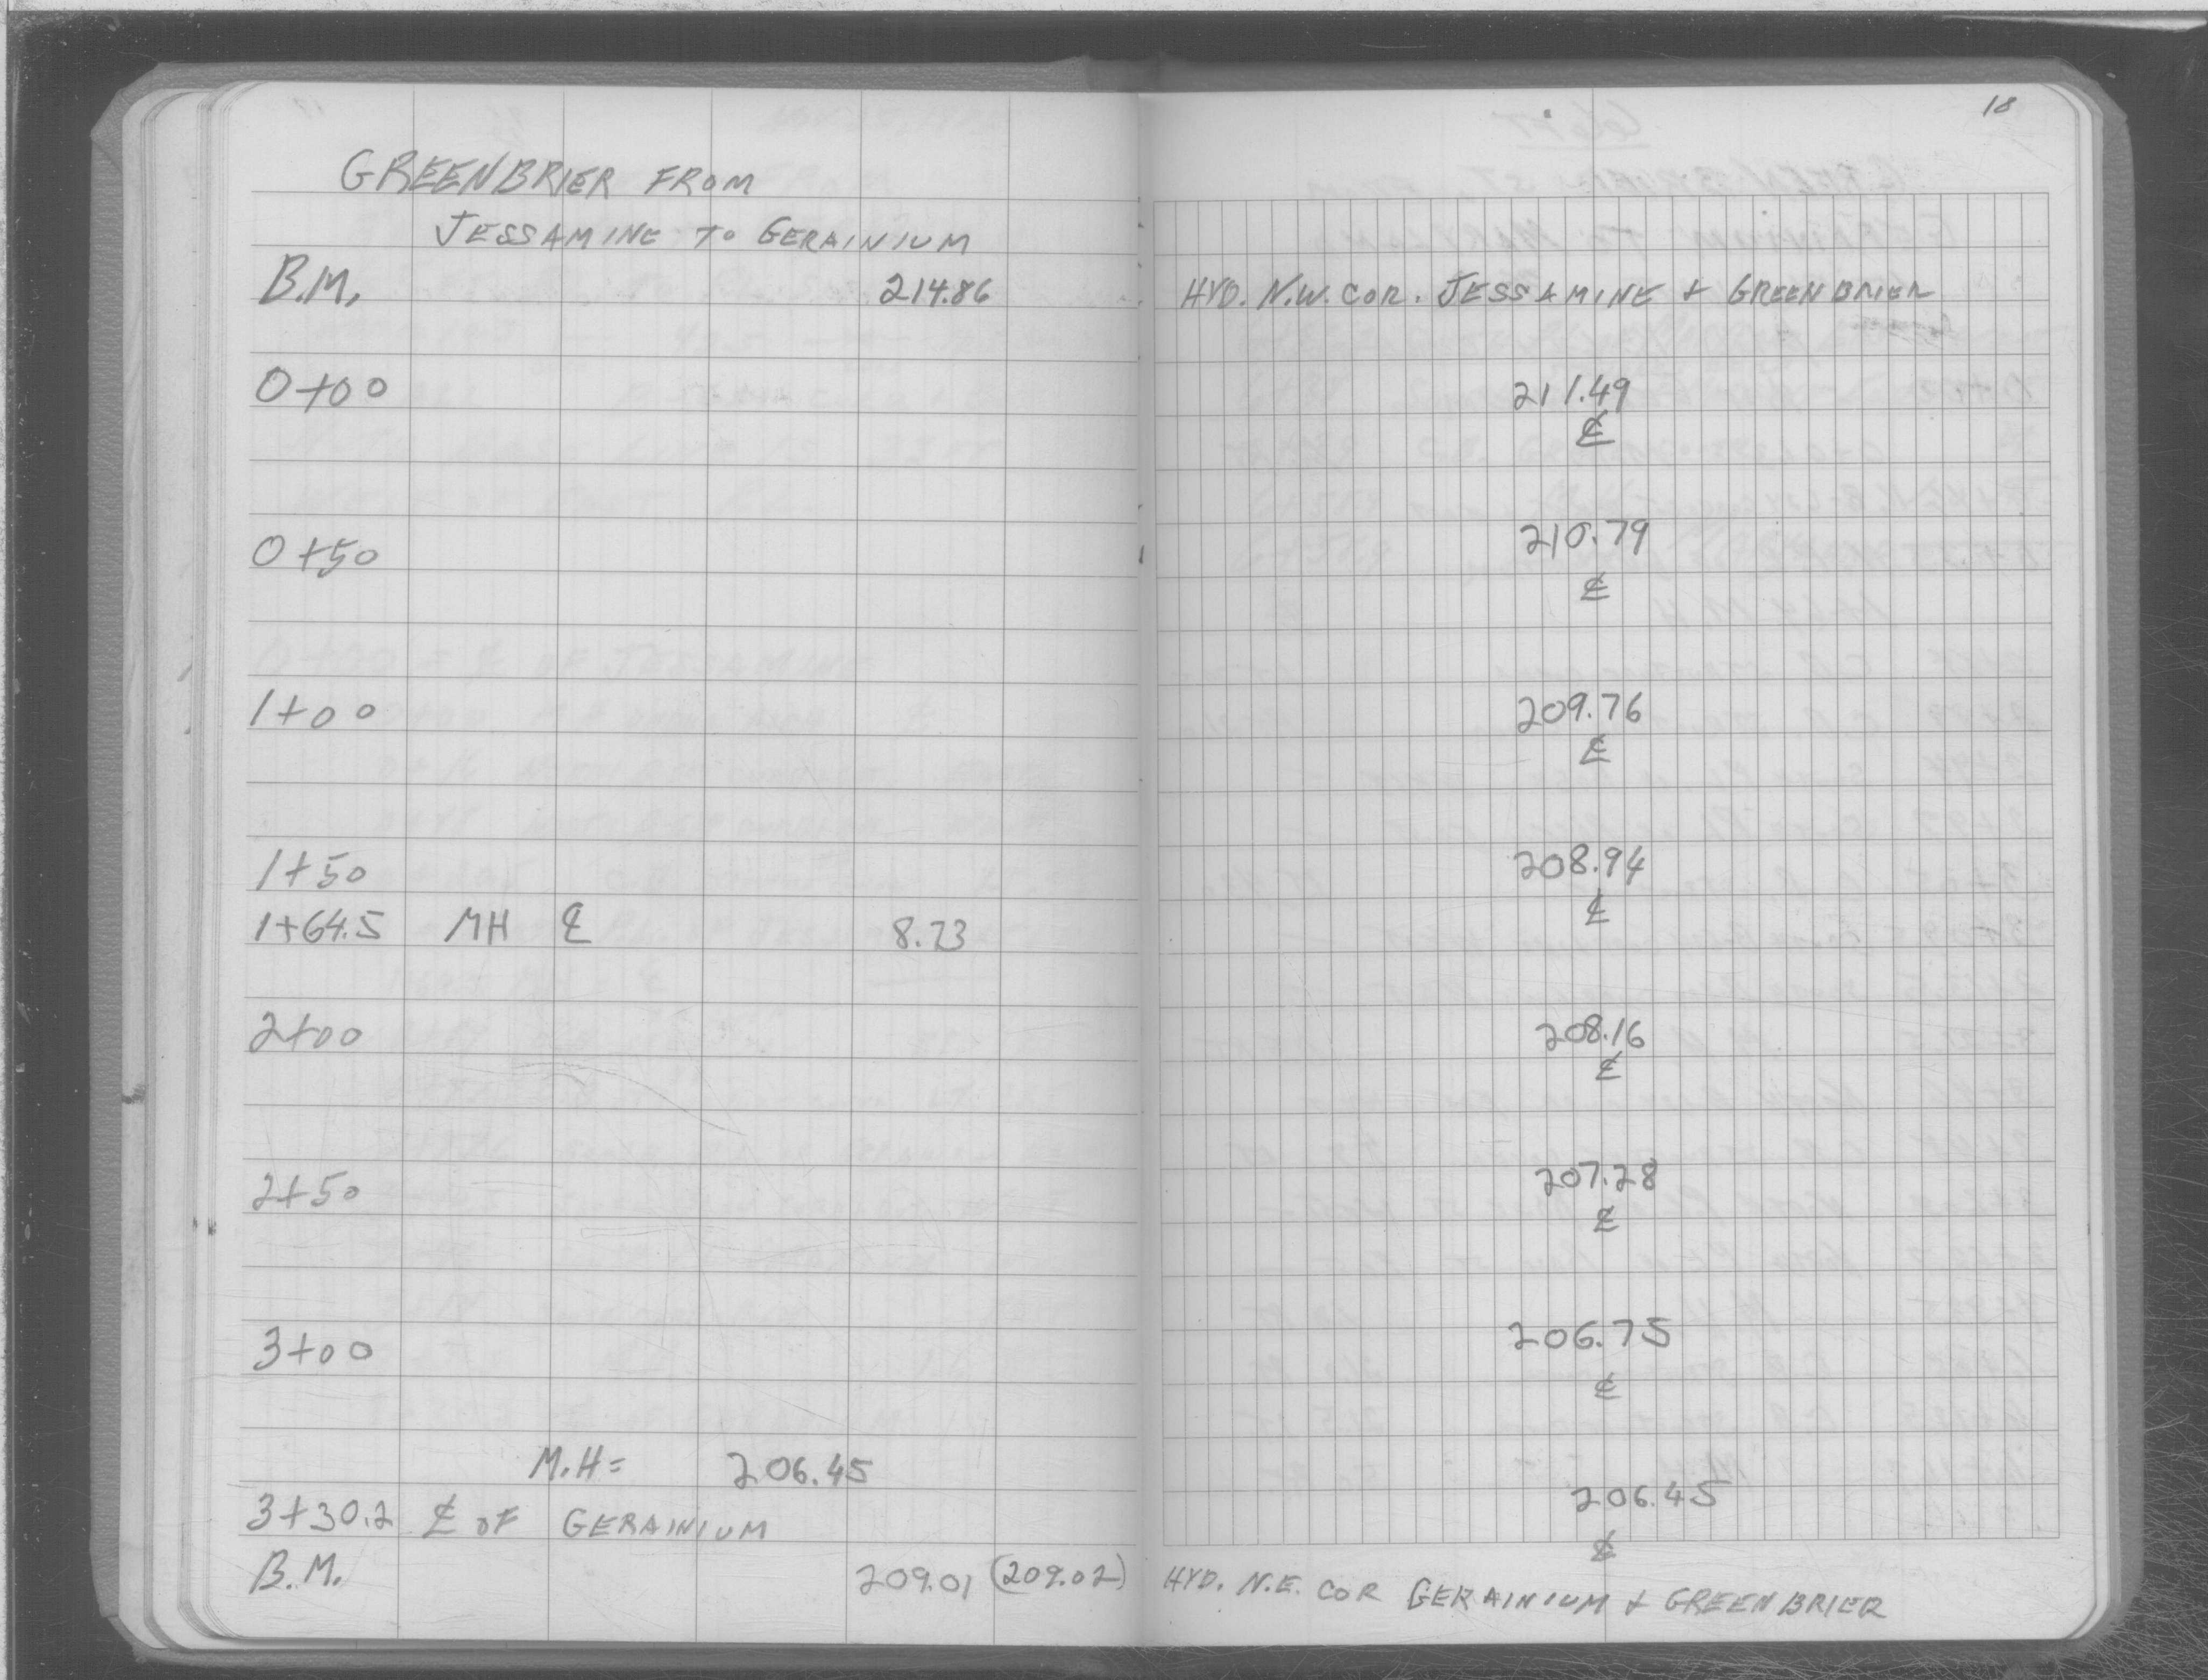 18
GREENBRIER FROM
JESSAMINE TO GERAINIUM
B.M. 214.86 HYD. N.W. COR. JESSAMINE & GREENBRIER
0+00 211.49
℄
0+50 210.79
℄
1+00 209.76
℄
1+50 208.94
℄
1+64.5 MH ℄ 8.73
2+00 208.16
℄
2+50 207.28
℄
3+00 206.75
℄
M.H= 206.45
3+30.2 ℄ OF GERAINIUM 206.45
℄
B.M. 209.01 (209.02) HYD. N.E. COR GERAINIUM & GREENBRIER